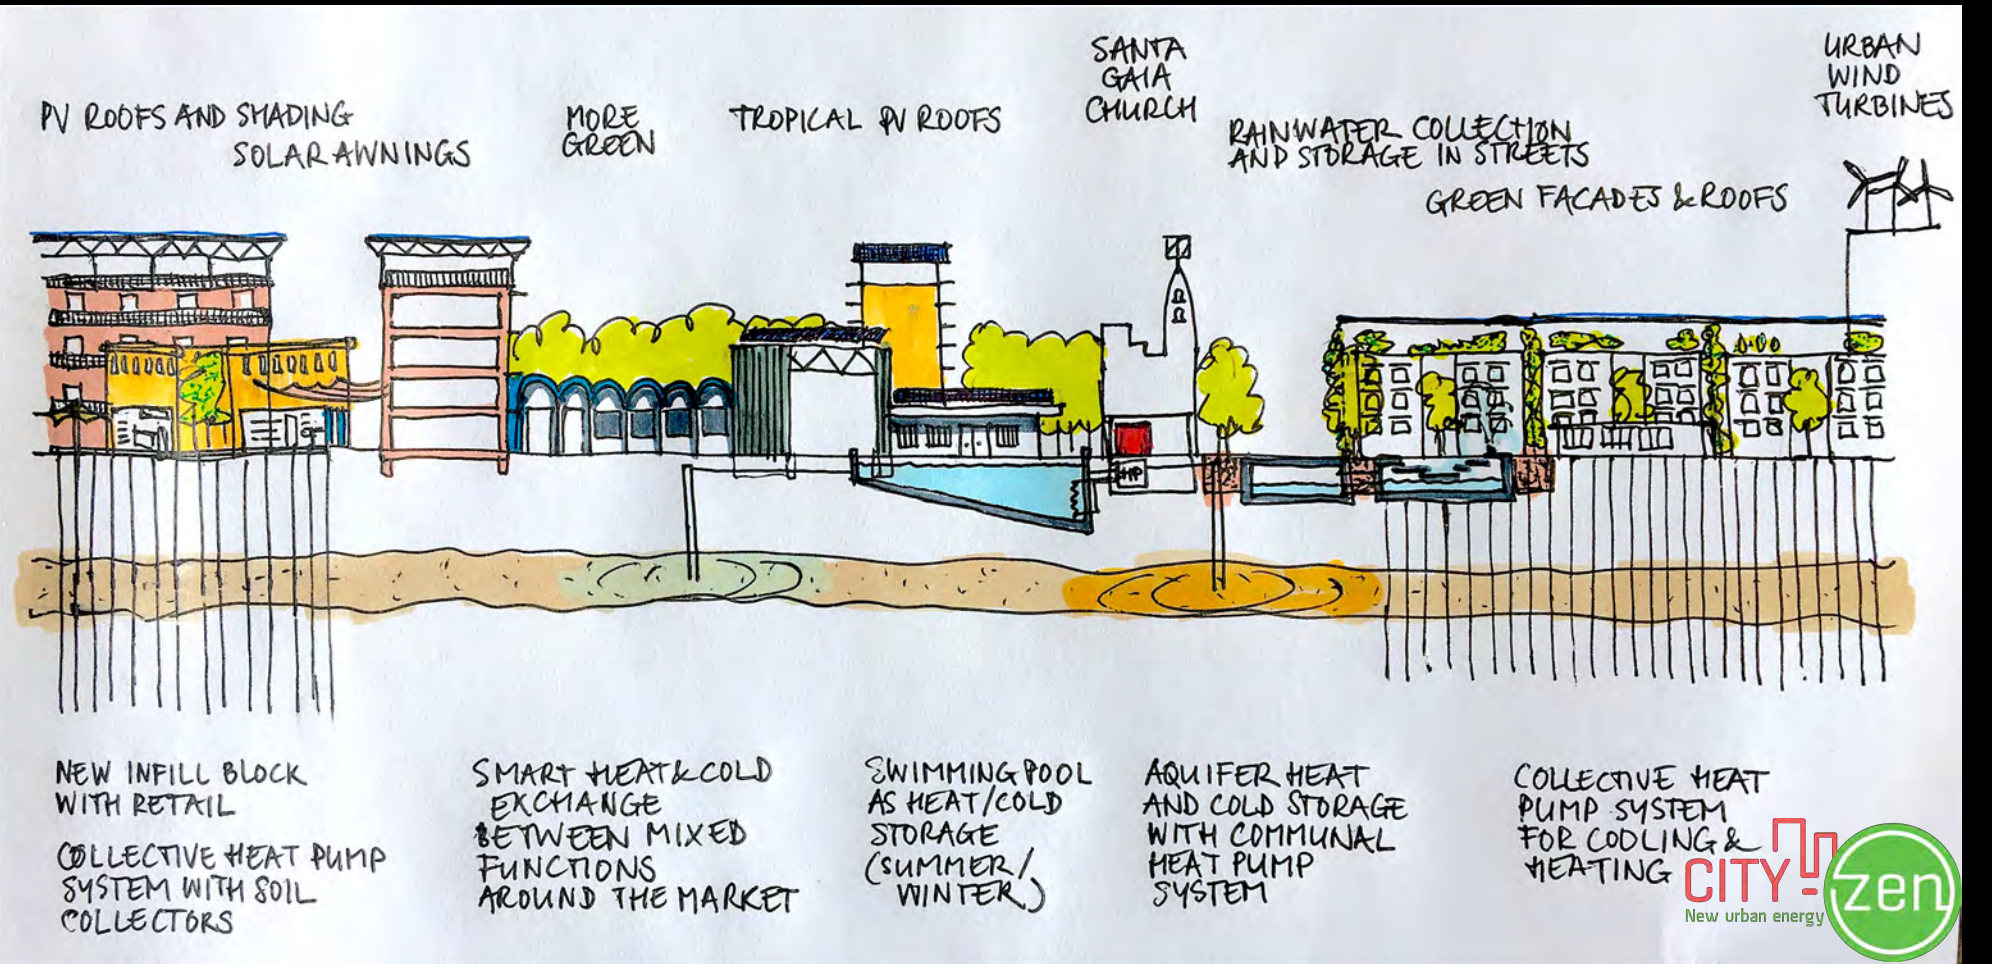 PV ROOFS AND SHADING
SOLAR AWNINGS
MORE
GREEN
TROPICAL PV ROOFS
SANTA
GAIA
CHURCH
RAINWATER COLLECTION
AND STORAGE IN STREETS
GREEN FACADES & ROOFS
URBAN
WIND
TURBINES
HP
NEW INFILL BLOCK
WITH RETAIL
COLLECTIVE HEAT PUMP
SYSTEM WITH SOIL
COLLECTORS
SMART HEAT & COLD
EXCHANGE
BETWEEN MIXED
FUNCTIONS
AROUND THE MARKET
SWIMMING POOL
AS HEAT/COLD
STORAGE
(SUMMER/
WINTER)
AQUIFER HEAT
AND COLD STORAGE
WITH COMMUNAL
HEAT PUMP
SYSTEM
COLLECTIVE HEAT
PUMP SYSTEM
FOR COOLING &
HEATING
CITY
New urban energy
zen